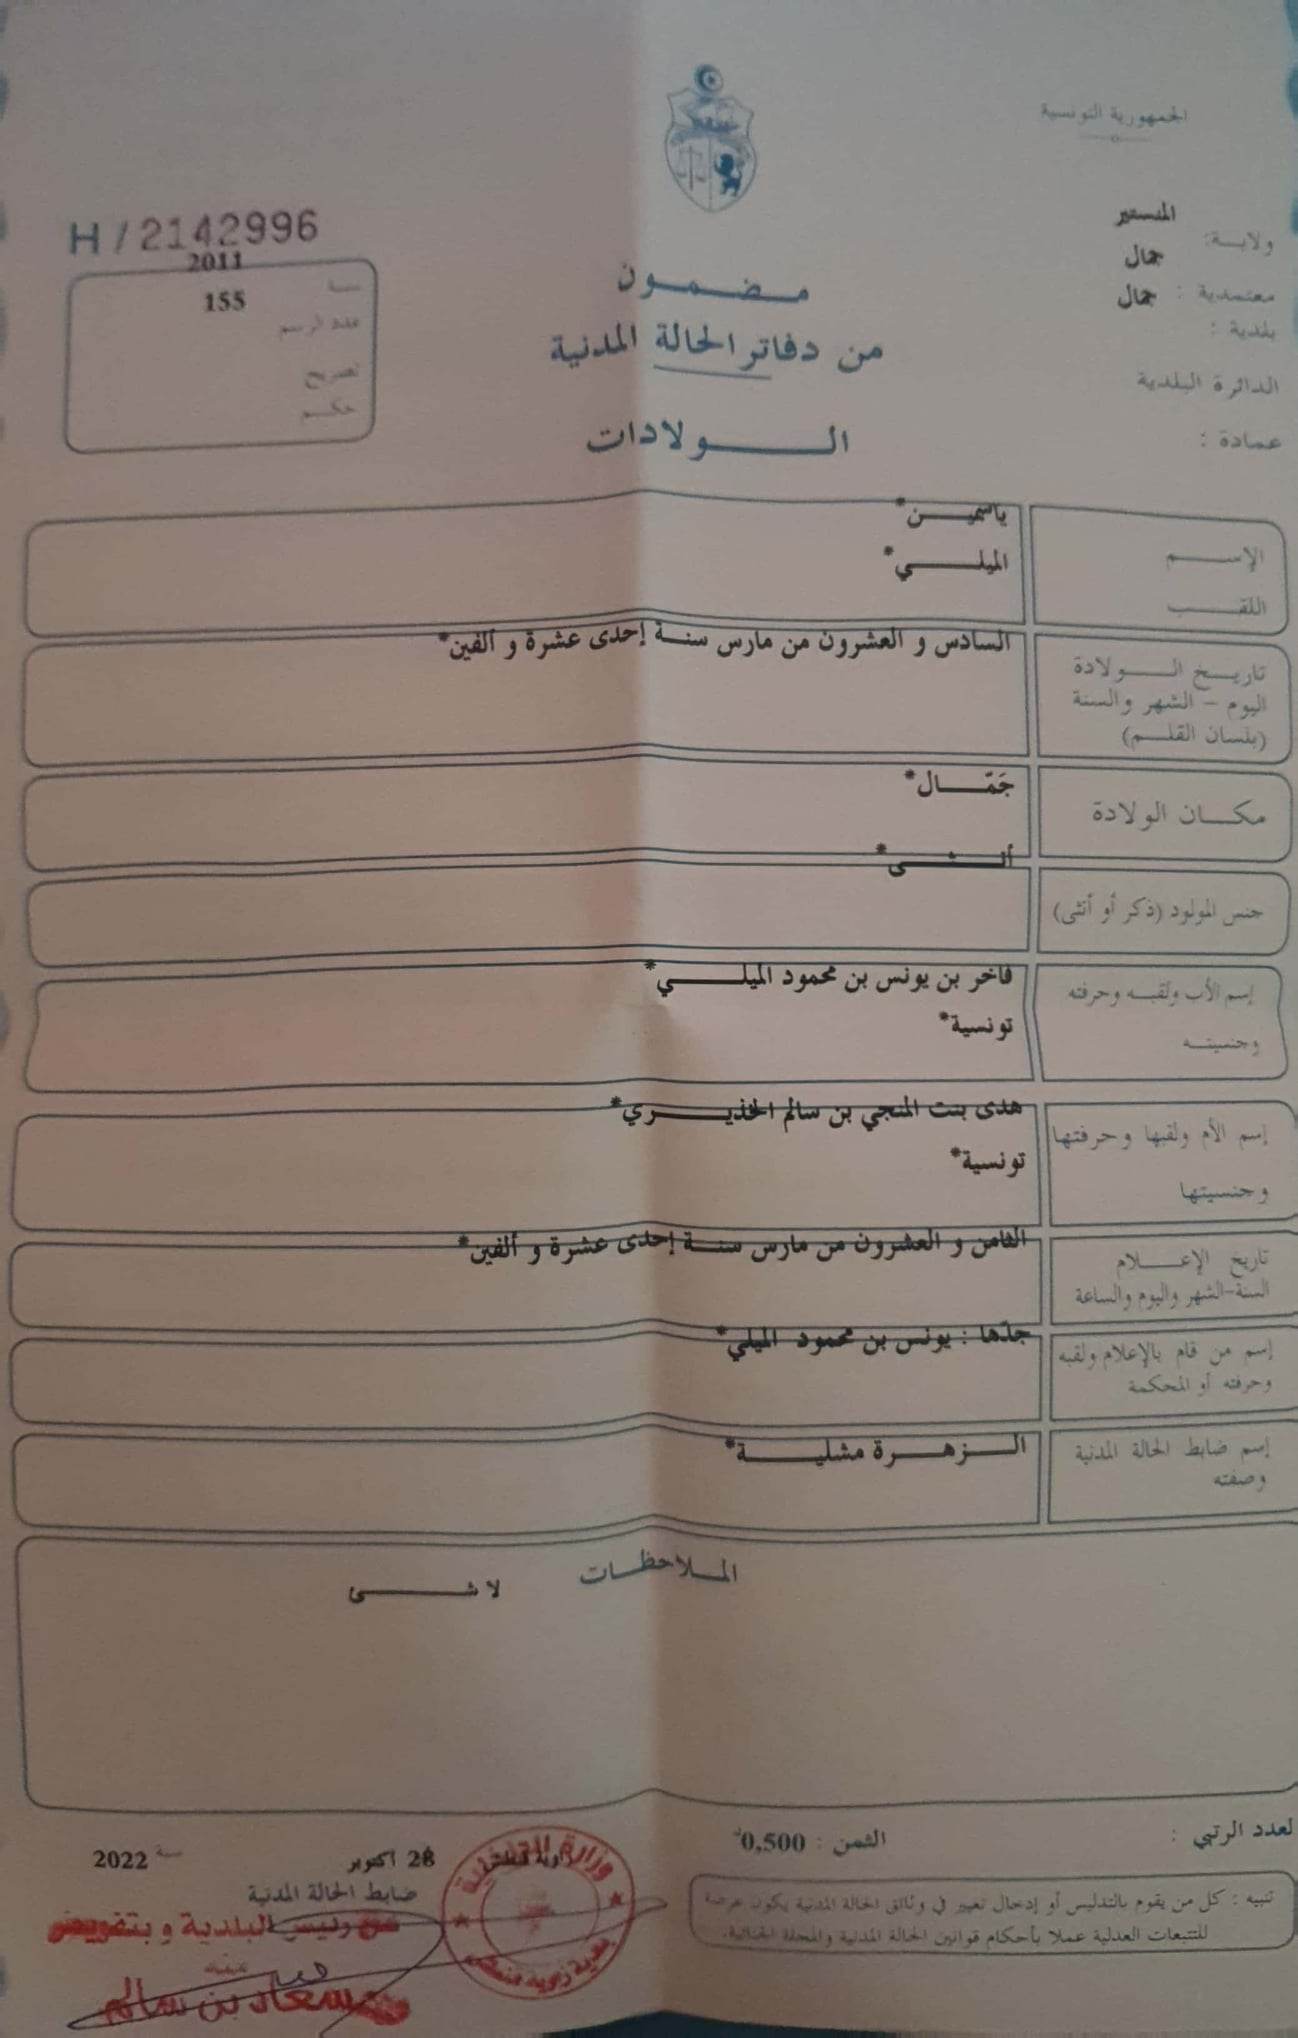 الجمهورية التونسية
المنستير
ولاية:
جمال
معتمدية :
جمال
بلدية :
الدائرة البلدية
عمادة :
H / 2142996
2011
سنة
155
عدد الرسم
تصريح
حكم
مضمون
من دفاتر الحالة المدنية
الولادات
ياسمين*
الإسم
الميلي*
اللقب
السادس و العشرون من مارس سنة إحدى عشرة و ألفين*
تاريخ الولادة
اليوم - الشهر والسنة
(بلسان القلم)
جَمّال*
مكان الولادة
أنثى*
جنس المولود (ذكر أو أنثى)
فاخر بن يونس بن محمود الميلي*
إسم الأب ولقبه وحرفته
تونسية*
وجنسيته
هدى بنت المنجي بن سالم الخذيري*
إسم الأم ولقبها وحرفتها
تونسية*
وجنسيتها
الثامن و العشرون من مارس سنة إحدى عشرة و ألفين*
تاريخ الإعلام
السنة-الشهر واليوم والساعة
جدّها : يونس بن محمود الميلي*
إسم من قام بالإعلام ولقبه
وحرفته أو المحكمة
الزهرة مشلية*
إسم ضابط الحالة المدنية
وصفته
الملاحظات
لا شئ
لعدد الرتبي :
الثمن : 0,500
تنبيه : كل من يقوم بالتدليس أو إدخال تغيير في وثائق الحالة المدنية يكون عرضة
للتتبعات العدلية عملا بأحكام قوانين الحالة المدنية والمجلة الجنائية.
28 أكتوبر سنة 2022
ضابط الحالة المدنية
عن رئيس البلدية و بتفويض
سعاد بن سالم